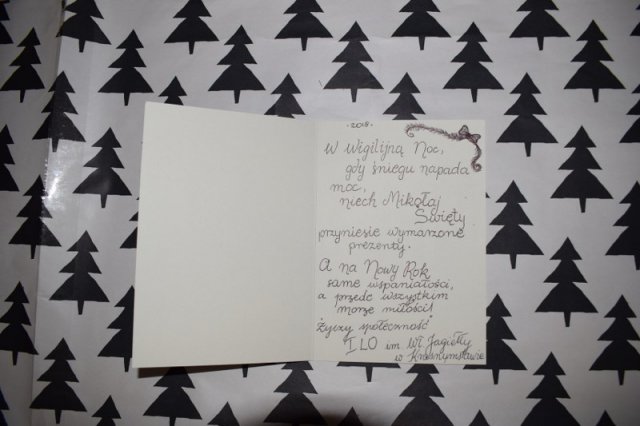 - 2018 -
W Wigilijną Noc,
gdy śniegu napada
moc,
niech Mikołaj
Święty
przyniesie wymarzone
prezenty.
A na Nowy Rok
same wspaniałości,
a przede wszystkim
morze miłości!
Życzy społeczność
I LO im. Wł. Jagiełły
w Krasnymstawie